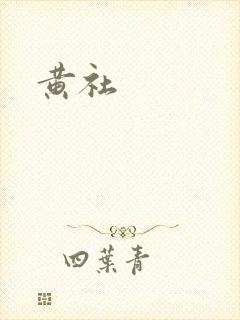 黄社
四葉青